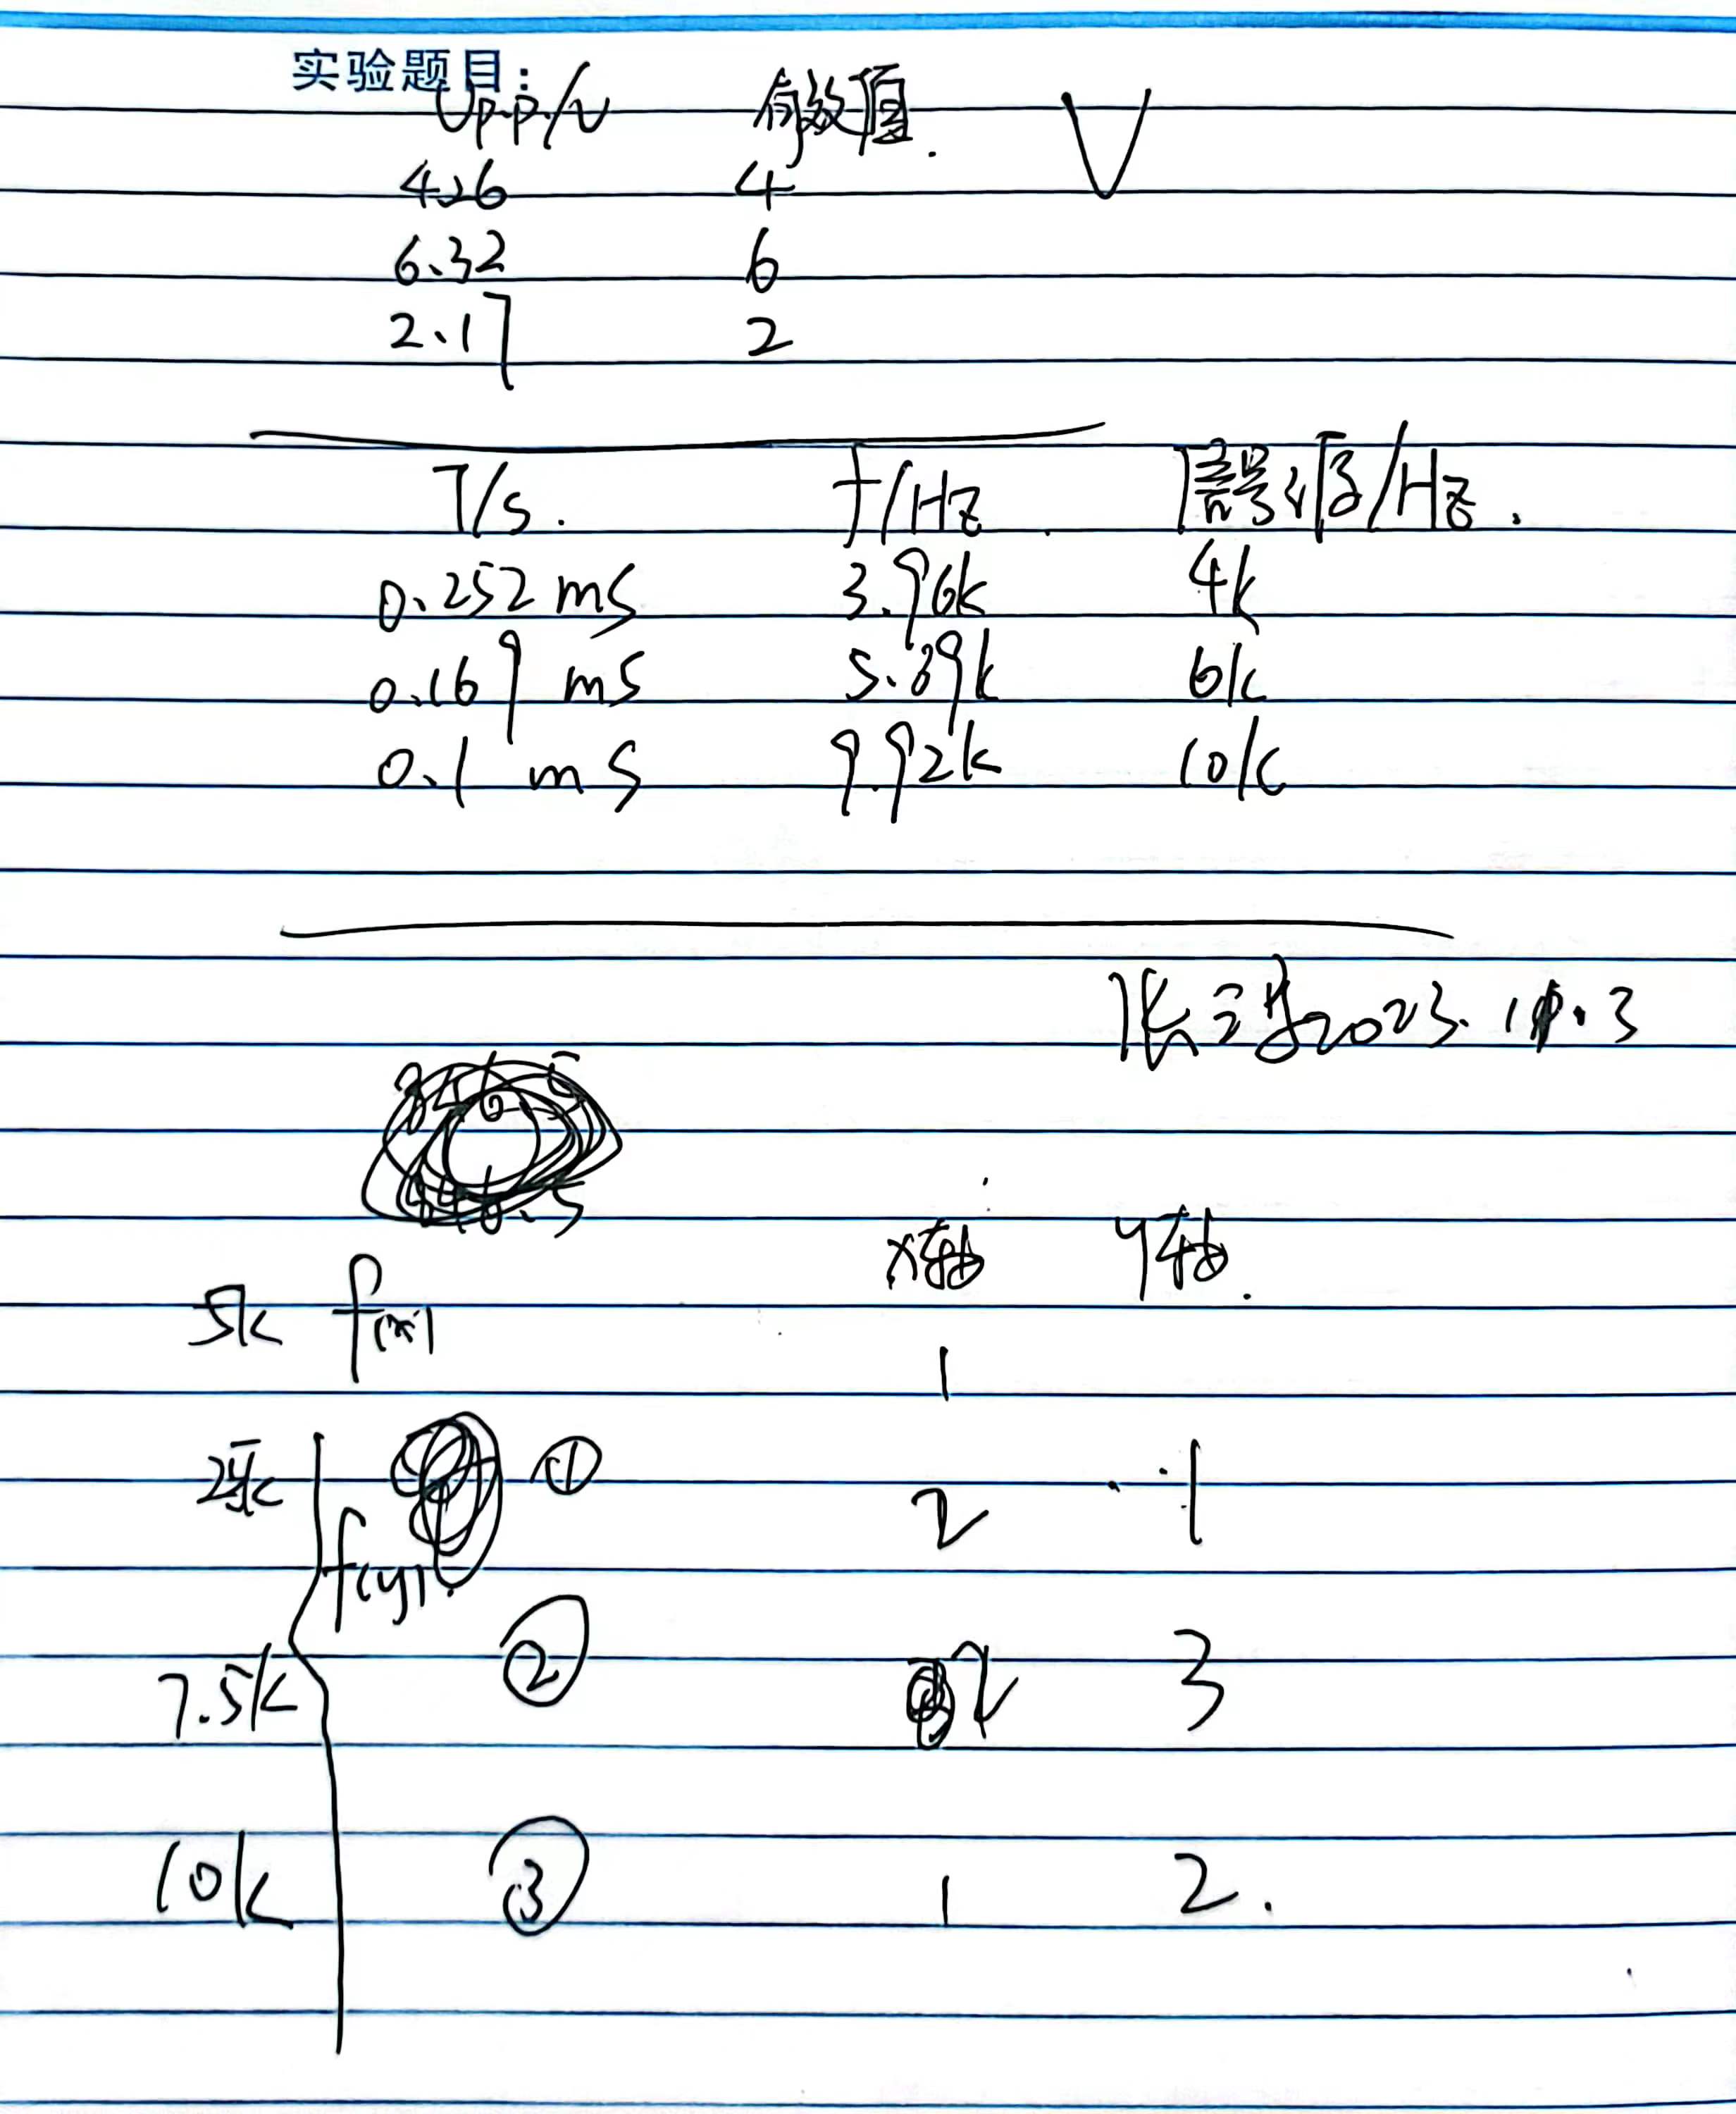 实验题目:
Up-p/V 有效值. V
4.26 4
6.32 6
2.17 2
T/s. f/Hz 信号源/Hz.
0.252 ms 3.96k 4k
0.169 ms 5.89k 6k
0.1 ms 9.92k 10k
2023. 11.3
x轴 y轴.
5k f(x)
1
2.5k ① 2 1
f(y).
7.5k ② 2 3
10k ③ 1 2.